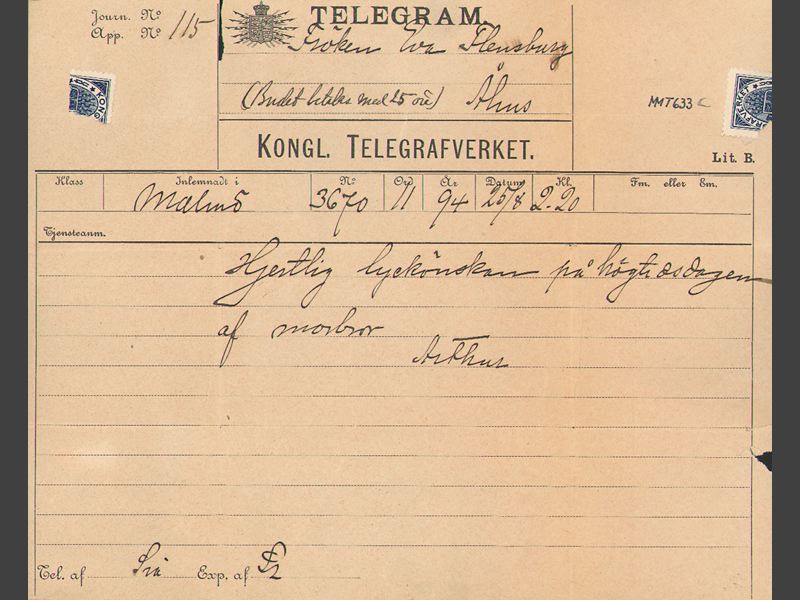 Journ. No
App. No 115
TELEGRAM.
Fröken Eva Flensburg
(Budet betalas med 25 öre) Åhus
MMT633 c
KONGL. TELEGRAFVERKET.
Lit. B.
Klass Inlemnadt i No Ord År Datum Kl. Fm. eller Em.
Malmö 3670 11 94 25/8 2.20
Tjensteanm.
Hjertlig lyckönskan på högtidsdagen
af morbror
Arthur
Tel. af Exp. af